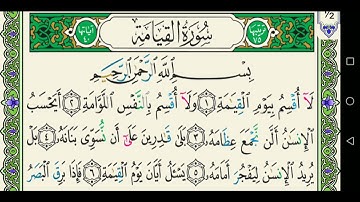 ترتيبها ٧٥
سُورَةُ الْقِيَامَةِ
آياتها ٤٠
١/٢
بِسْمِ اللَّهِ الرَّحْمَٰنِ الرَّحِيمِ
لَآ أُقْسِمُ بِيَوْمِ الْقِيَٰمَةِ ١ وَلَآ أُقْسِمُ بِالنَّفْسِ اللَّوَّامَةِ ٢ أَيَحْسَبُ
الْإِنسَٰنُ أَلَّن نَّجْمَعَ عِظَامَهُۥ ٣ بَلَىٰ قَٰدِرِينَ عَلَىٰٓ أَن نُّسَوِّيَ بَنَانَهُۥ ٤ بَلْ
يُرِيدُ الْإِنسَٰنُ لِيَفْجُرَ أَمَامَهُۥ ٥ يَسْـَٔلُ أَيَّانَ يَوْمُ الْقِيَٰمَةِ ٦ فَإِذَا بَرِقَ الْبَصَرُ